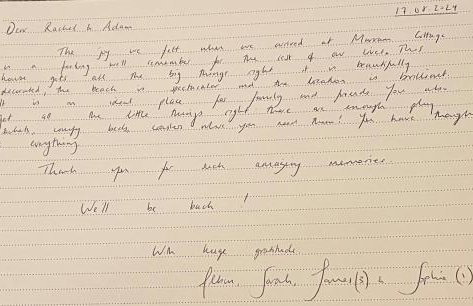 17.08.2024
Dear Rachel & Adam
The joy we felt when we arrived at Marram Cottage
is a feeling we'll remember for the rest of our lives. This
house gets all the big things right: it is beautifully
decorated, the beach is spectacular and the location is brilliant.
It is an ideal place for family and friends. You also
get all the little things right: there are enough plug
sockets, comfy beds, coasters where you need them! You have thought
everything.
Thank you for such amazing memories.
We'll be back!
With huge gratitude
Sarah, James (3) & Sophie (1)